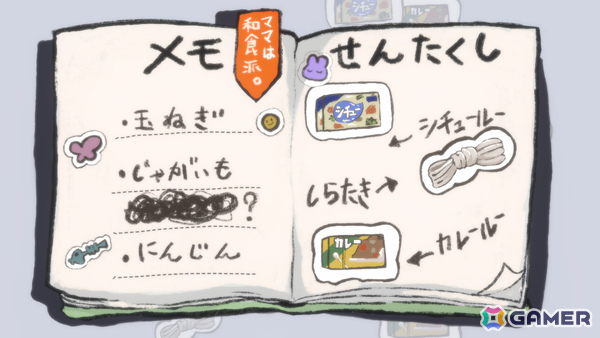 メモ
ママは
和食派。
・玉ねぎ
・じゃがいも
?
・にんじん
せんたくし
シチュー
シチュールー
しらたき
カレー
カレールー
GAMER